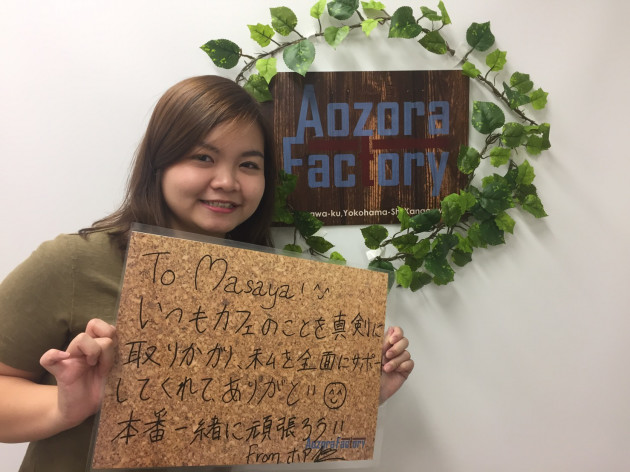 Aozora
Factory
awa-ku,Yokohama-Shi,Kanag
To Masaya!
いつもカフェのことを真剣に
取りかかり、私を全面にサポート
してくれてありがとい
本番一緒に頑張ろうい
Aozora Factory
From